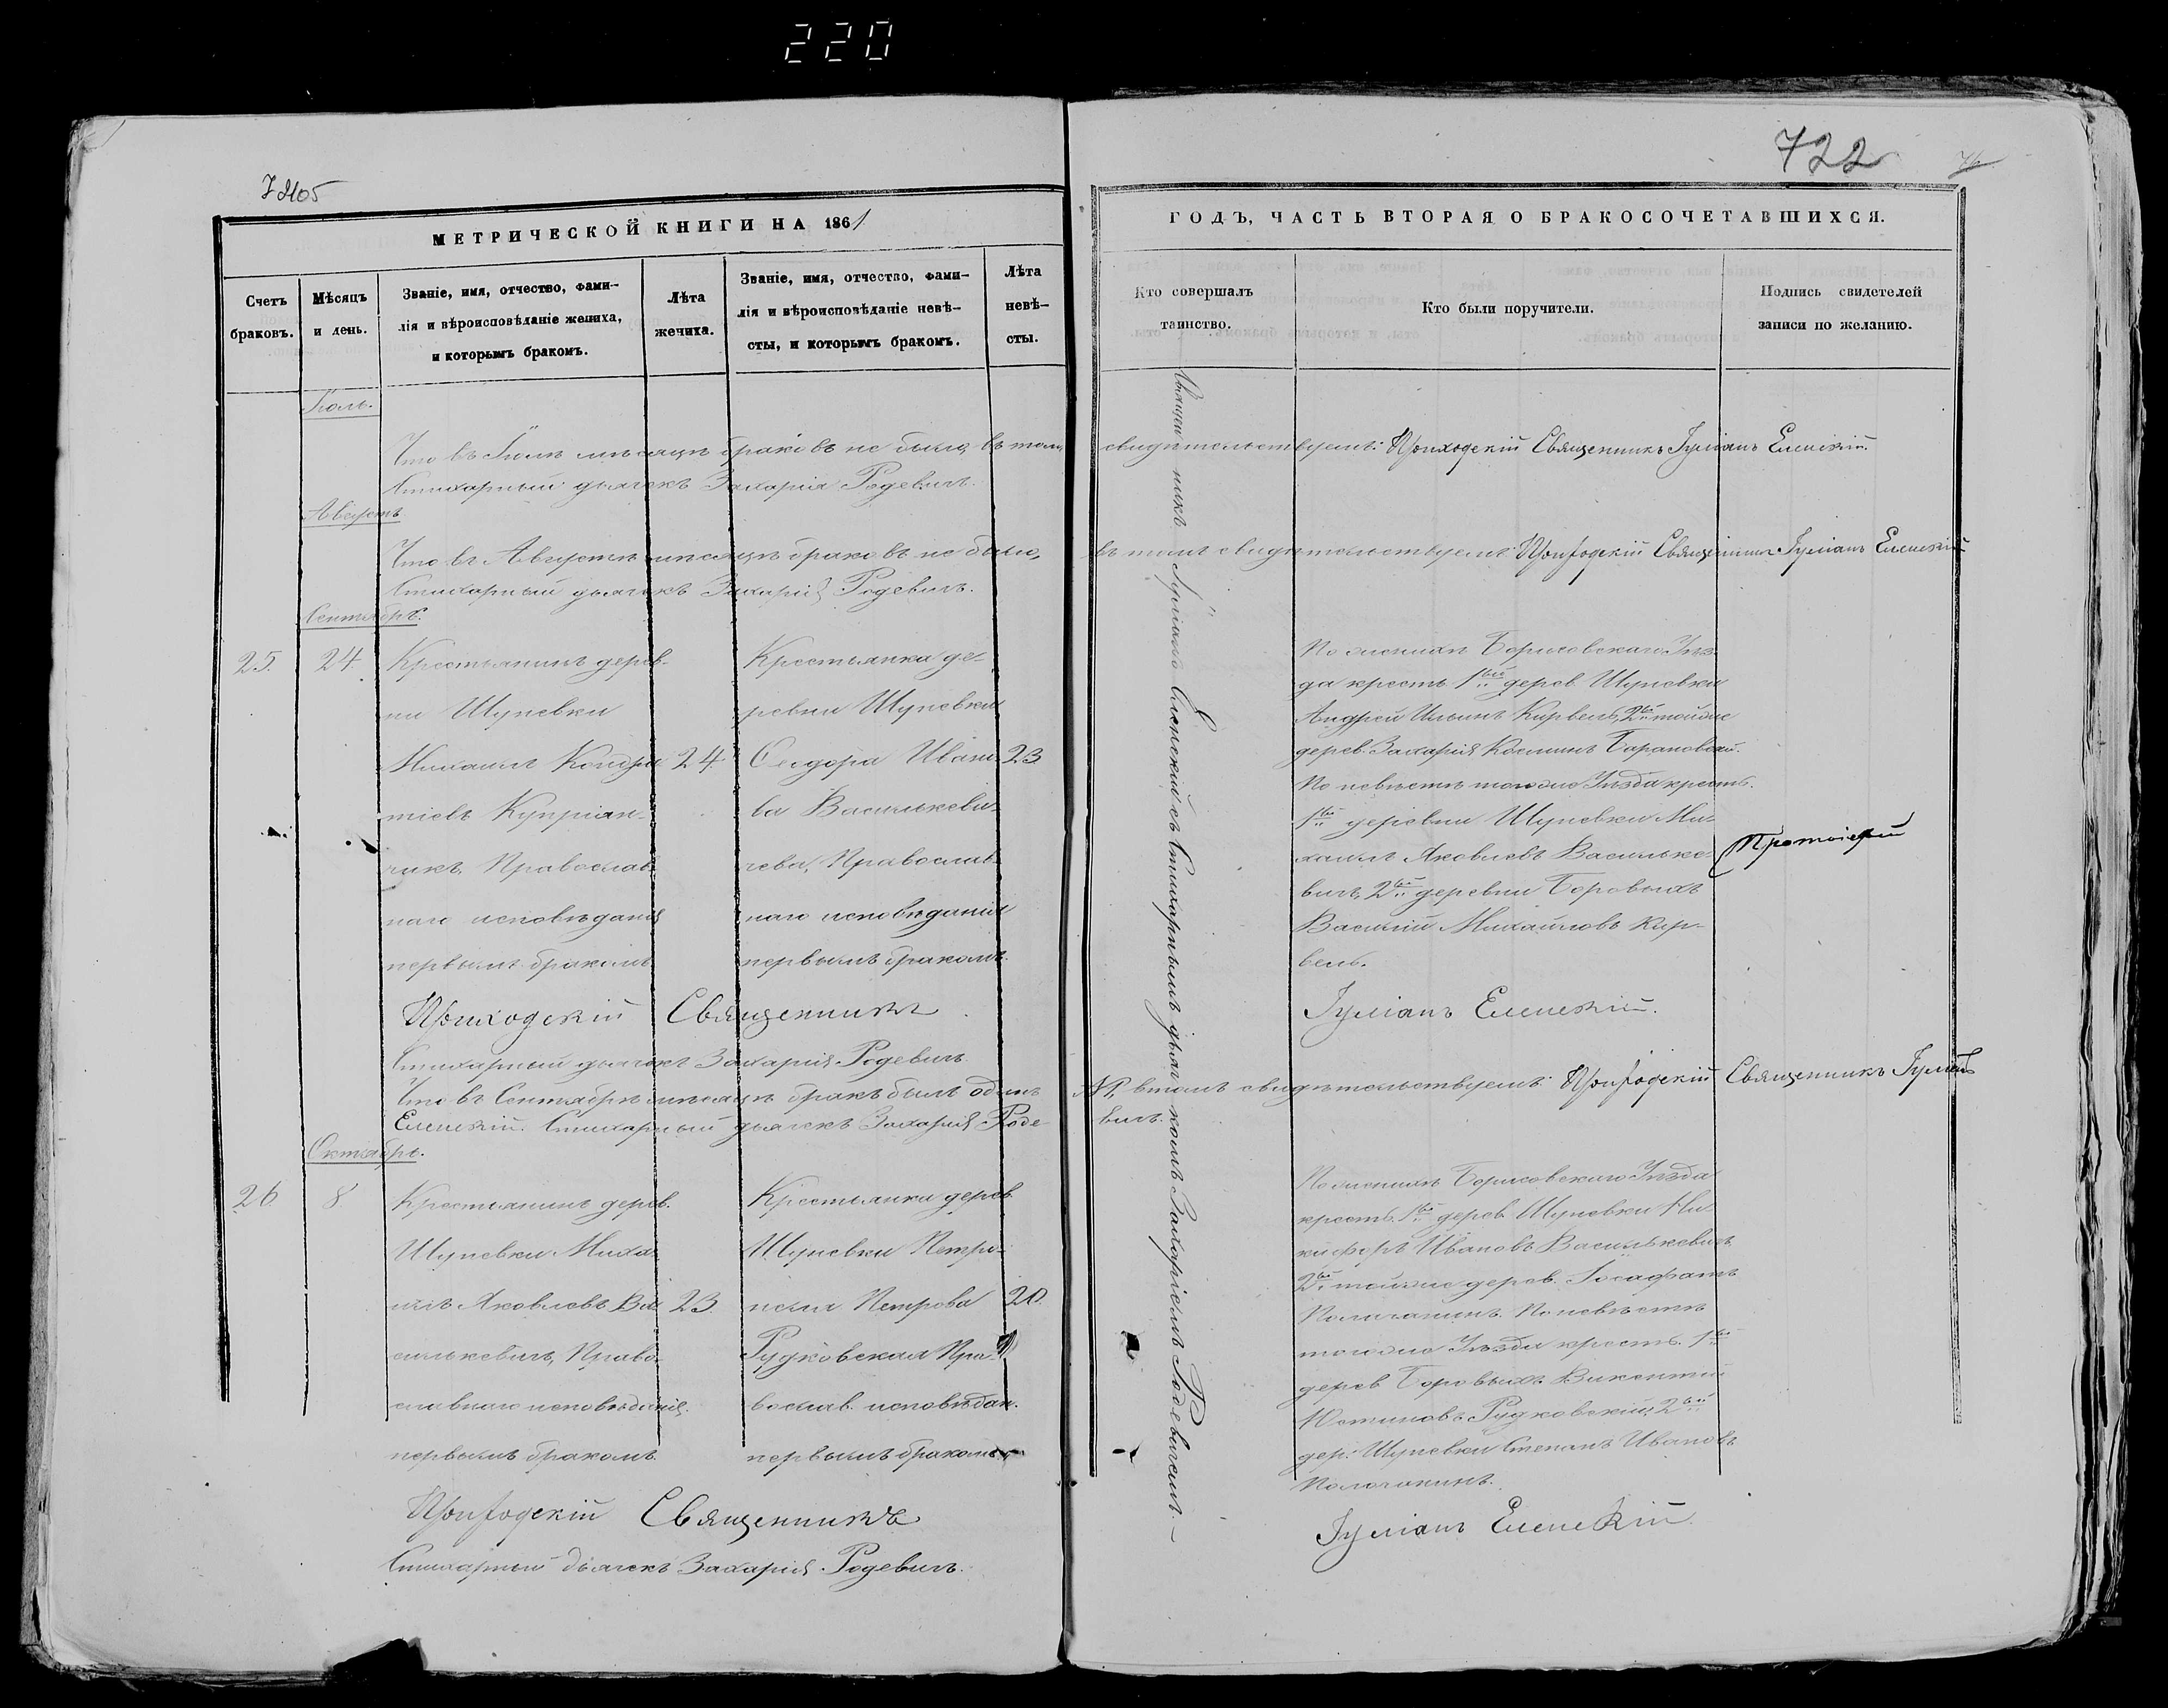 220
722
76
МЕТРИЧЕСКОЙ КНИГИ НА 1861
ГОДЪ, ЧАСТЬ ВТОРАЯ О БРАКОСОЧЕТАВШИХСЯ.
Счетъ
браковъ.
Мѣсяцъ
и день.
Званіе, имя, отчество, фами-
лія и вѣроисповѣданіе жениха,
и которымъ бракомъ.
Лѣта
жениха.
Званіе, имя, отчество, фами-
лія и вѣроисповѣданіе невѣ-
сты, и которымъ бракомъ.
Лѣта
невѣ-
сты.
Кто совершалъ
таинство.
Кто были поручители.
Подпись свидетелей
записи по желанію.
Іюль.
Что въ Іюлѣ мѣсяцѣ браковъ не было, въ томъ свидѣтельствуемъ: Приходскій Священникъ Іуліанъ Еленскій.
Стихарный дьячекъ Захарія Родевичъ.
Августъ
Что въ Августѣ мѣсяцѣ браковъ не было, въ томъ свидѣтельствуемъ: Приходскій Священникъ Іуліанъ Еленскій
Стихарный дьячекъ Захарія Родевичъ.
Сентябрь.
25.
24.
Крестьянинъ дерев-
ни Шупевки
Михаилъ Кондра
тіевъ Купріян-
чикъ, Православ-
наго исповѣданія
первымъ бракомъ
24.
Крестьянка де-
ревни Шупевки
Ѳеодора Ивано
ва Василькеви-
чева, Православ-
наго исповѣданія
первымъ бракомъ.
23
Священникъ Іуліанъ Еленскій съ Стихарнымъ дьячкомъ Захаріемъ Родевичемъ.
По женихѣ Борисовскаго Уѣз-
да крест. 1ый дерев. Шупевки
Андрей Ильинъ Кирвель, 2ый тойже
дерев. Захарія Косминъ Барановскій.
По невѣстѣ тогоже Уѣзда крест.
1ый деревни Шупевки Ми-
хаилъ Яковлевъ Василько-
вичъ, 2ый деревни Боровыхъ
Василій Михайловъ Кир-
вель.
Протоіерей
Приходскій Священникъ Іуліанъ Еленскій.
Стихарный дьячекъ Захарія Родевичъ.
Что въ Сентябрѣ мѣсяцѣ бракъ былъ одинъ №1, втомъ свидѣтельствуемъ: Приходскій Священникъ Іуліанъ
Еленскій. Стихарный дьячекъ Захарія Роде-
вичъ.
Октябрь.
26
8.
Крестьянинъ дерев.
Шупевки Миха-
илъ Яковлевъ Ва
силькевичъ, Право-
славнаго исповѣданія.
первымъ бракомъ.
23.
Крестьянка дерев.
Шупевки Петро-
нелля Петрова
Рудковская Пра-
вослав. исповѣдан.
первымъ бракомъ.
20.
По женихѣ Борисовскаго Уѣзда
крест. 1ый дерев. Шупевки Ни-
кифоръ Ивановъ Василькевичъ
2ый тойже дерев. Іосафатъ
Полочанинъ. По невѣстѣ
тогоже Уѣзда крест. 1ый
дерев. Боровыхъ Викентій
Юстиновъ Рудковскій, 2ый
дер. Шупевки Степанъ Ивановъ
Полочанинъ.
Приходскій Священникъ Іуліанъ Еленскій.
Стихарный дьячекъ Захарія Родевичъ.